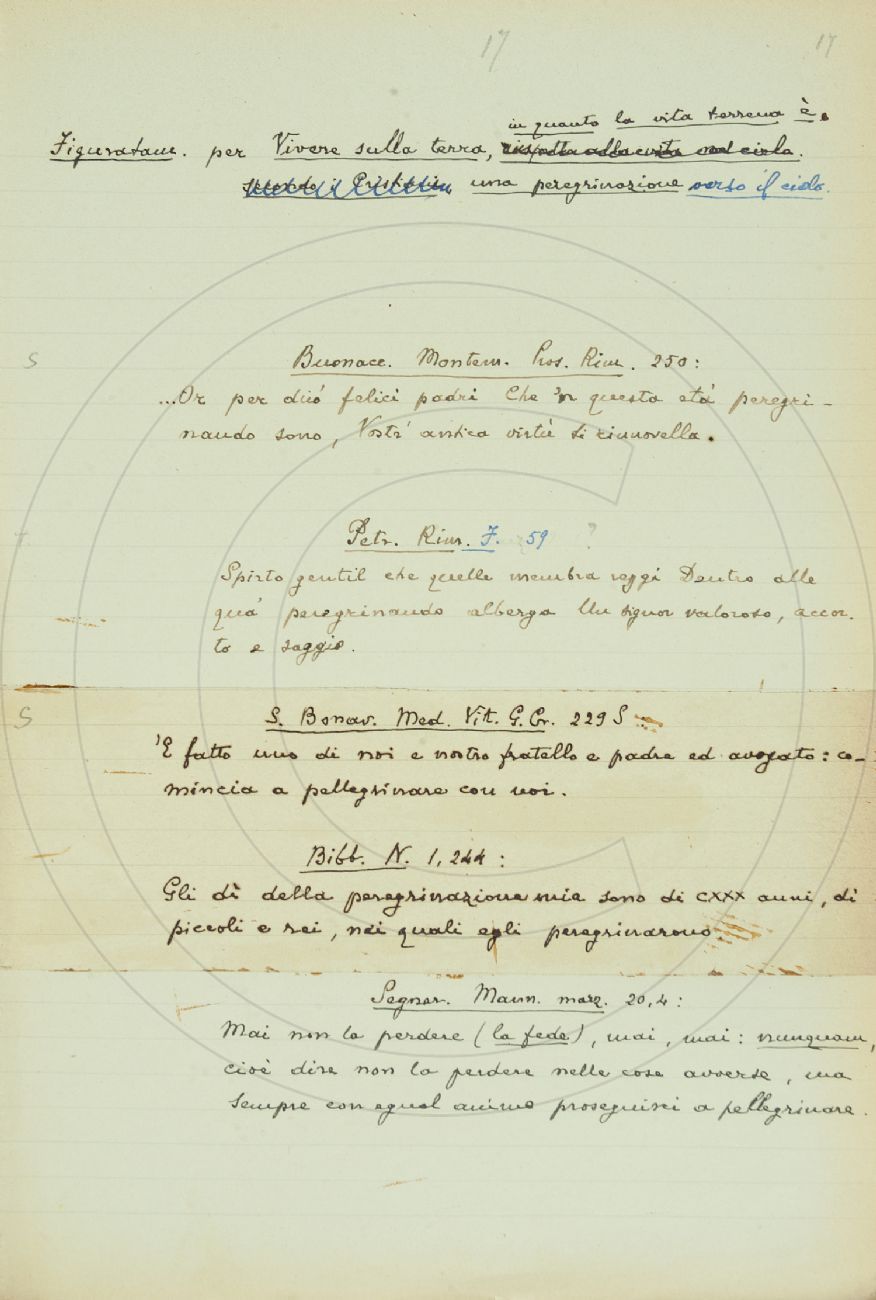 17 17
in quanto la vita terrena è
Figuratam. per Vivere sulla terra, rispetto alla vita nel cielo.
secondo i Cristiani, una peregrinazione verso il cielo.
S Buonacc. Montem. Pros. Rim. 250:
...Or per diió felici padri Che 'n questa età peregri-
nando sono, Vostr' antica virtù si rinnovella.
Petr. Rim. F. 59 ?
Spirto gentil che quelle membra reggi Dentro alle
qua' peregrinando alberga Un signor valoroso, accor.
to e saggio.
S S. Bonav. Med. Vit. G. Cr. 229 S
'E fatto uno di noi e nostro fratello e padre ed avogato: co-
mincia a pellegrinare con noi.
Bibb. N. 1, 244:
Gli dì della peregrinazione mia sono di CXXX anni, di
piccoli e rei, nei quali egli peregrinarono.
Segner. Mann. marz. 20,4:
Mai non la perdere (la fede), mai, mai: nunquam,
cioè dire non la perdere nelle cose avverse, ma
sempre con egual animo proseguisci a pellegrinare.